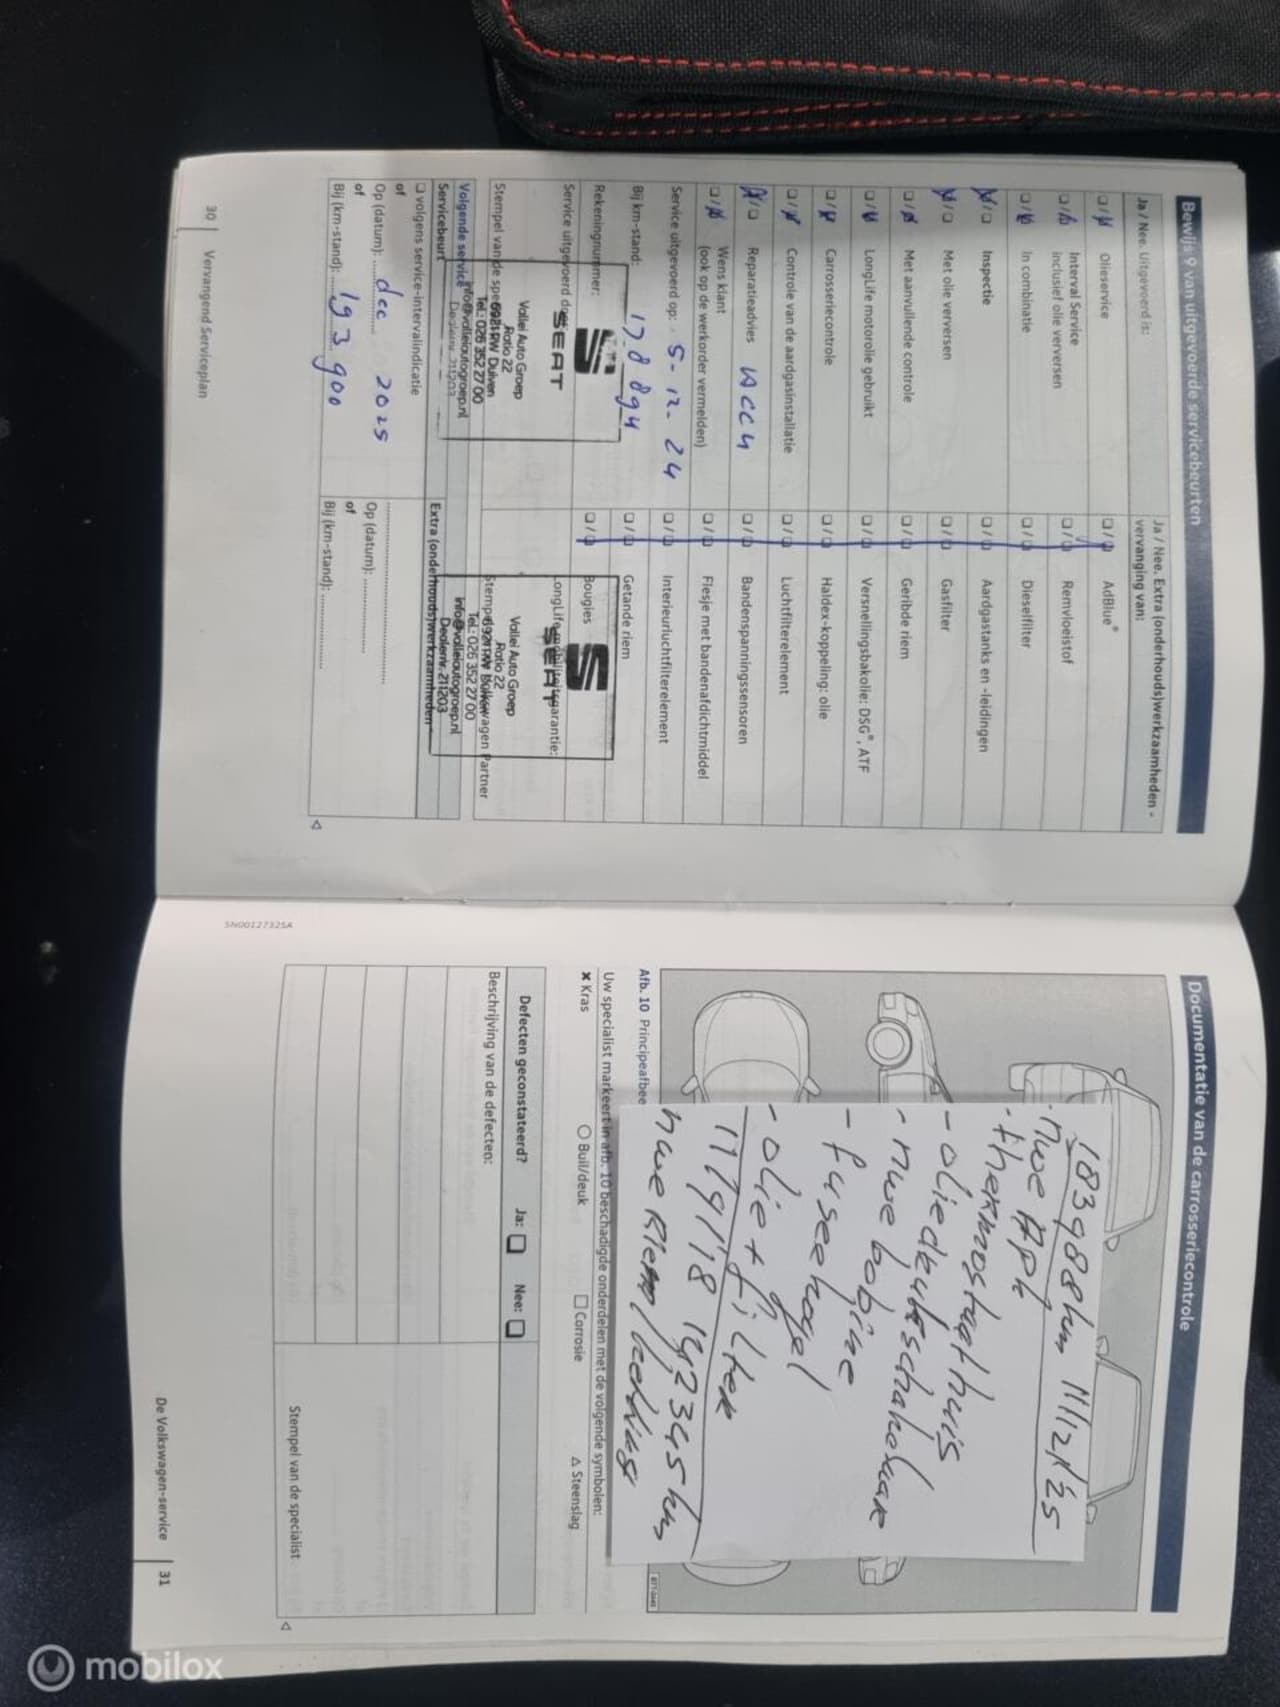 Bewijs 9 van uitgevoerde servicebeurten
Ja / Nee. Uitgevoerd is:
Olieservice
Interval Service
inclusief olie verversen
In combinatie
Inspectie
Met olie verversen
Met aanvullende controle
LongLife motorolie gebruikt
Carrosseriecontrole
Controle van de aardgasinstallatie
Reparatieadvies ACCU
Wens klant
(ook op de werkorder vermelden)
Service uitgevoerd op: 5-12-24
Bij km-stand: 178894
Rekeningnummer:
Service uitgevoerd door:
SEAT
Vallei Auto Groep
Ratio 22
6921 RW Duiven
Tel.: 026 352 27 00
info@valleiautogroep.nl
Dealernr. 211203
Volgende service
Servicebeurt
volgens service-intervalindicatie
of
Op (datum): dec 2025
of
Bij (km-stand): 193900
Ja / Nee. Extra (onderhouds)werkzaamheden -
vervanging van:
AdBlue®
Remvloeistof
Dieselfilter
Aardgastanks en -leidingen
Gasfilter
Geribde riem
Versnellingsbakolie: DSG®, ATF
Haldex-koppeling: olie
Luchtfilterelement
Bandenspanningssensoren
Flesje met bandenafdichtmiddel
Interieurluchtfilterelement
Getande riem
Bougies
LongLife-mobiliteitsgarantie:
SEAT
Vallei Auto Groep
Ratio 22
6921 RW Duiven
Stempel van Volkswagen Partner
Tel.: 026 352 27 00
info@valleiautogroep.nl
Dealernr. 211203
Extra (onderhouds)werkzaamheden
Op (datum):
of
Bij (km-stand):
30 Vervangend Serviceplan
5N0012732SA
Documentatie van de carrosseriecontrole
183988km 11/12/'25
· nwe Apk
· thermostaathuis
- oliedrukschakelaar
- nwe bobine
- fuseekogel
- olie + filter
17/9/'18 142345km
nwe Riem
Afb. 10 Principeafbee
Uw specialist markeert in afb. 10 beschadigde onderdelen met de volgende symbolen:
× Kras
Buil/deuk
Corrosie
Steenslag
Defecten geconstateerd? Ja: Nee:
Beschrijving van de defecten:
Stempel van de specialist
De Volkswagen-service 31
mobilox